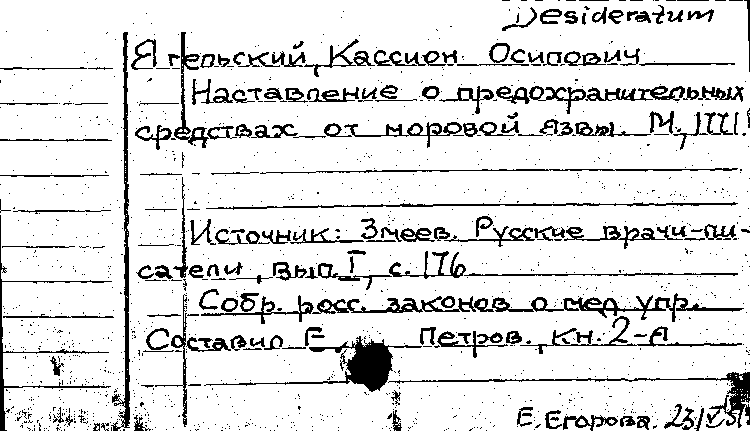 Desideratum
Ягельский, Кассион Осипович
Наставление о предохранительных
средствах от моровой язвы. М., 1771.
Источник: Змеев. Русские врачи-пи-
сатели, вып. I, с. 176
Собр. росс. законов о мед упр.
Составил Е. Петров., кн. 2-я.
Е. Егорова.